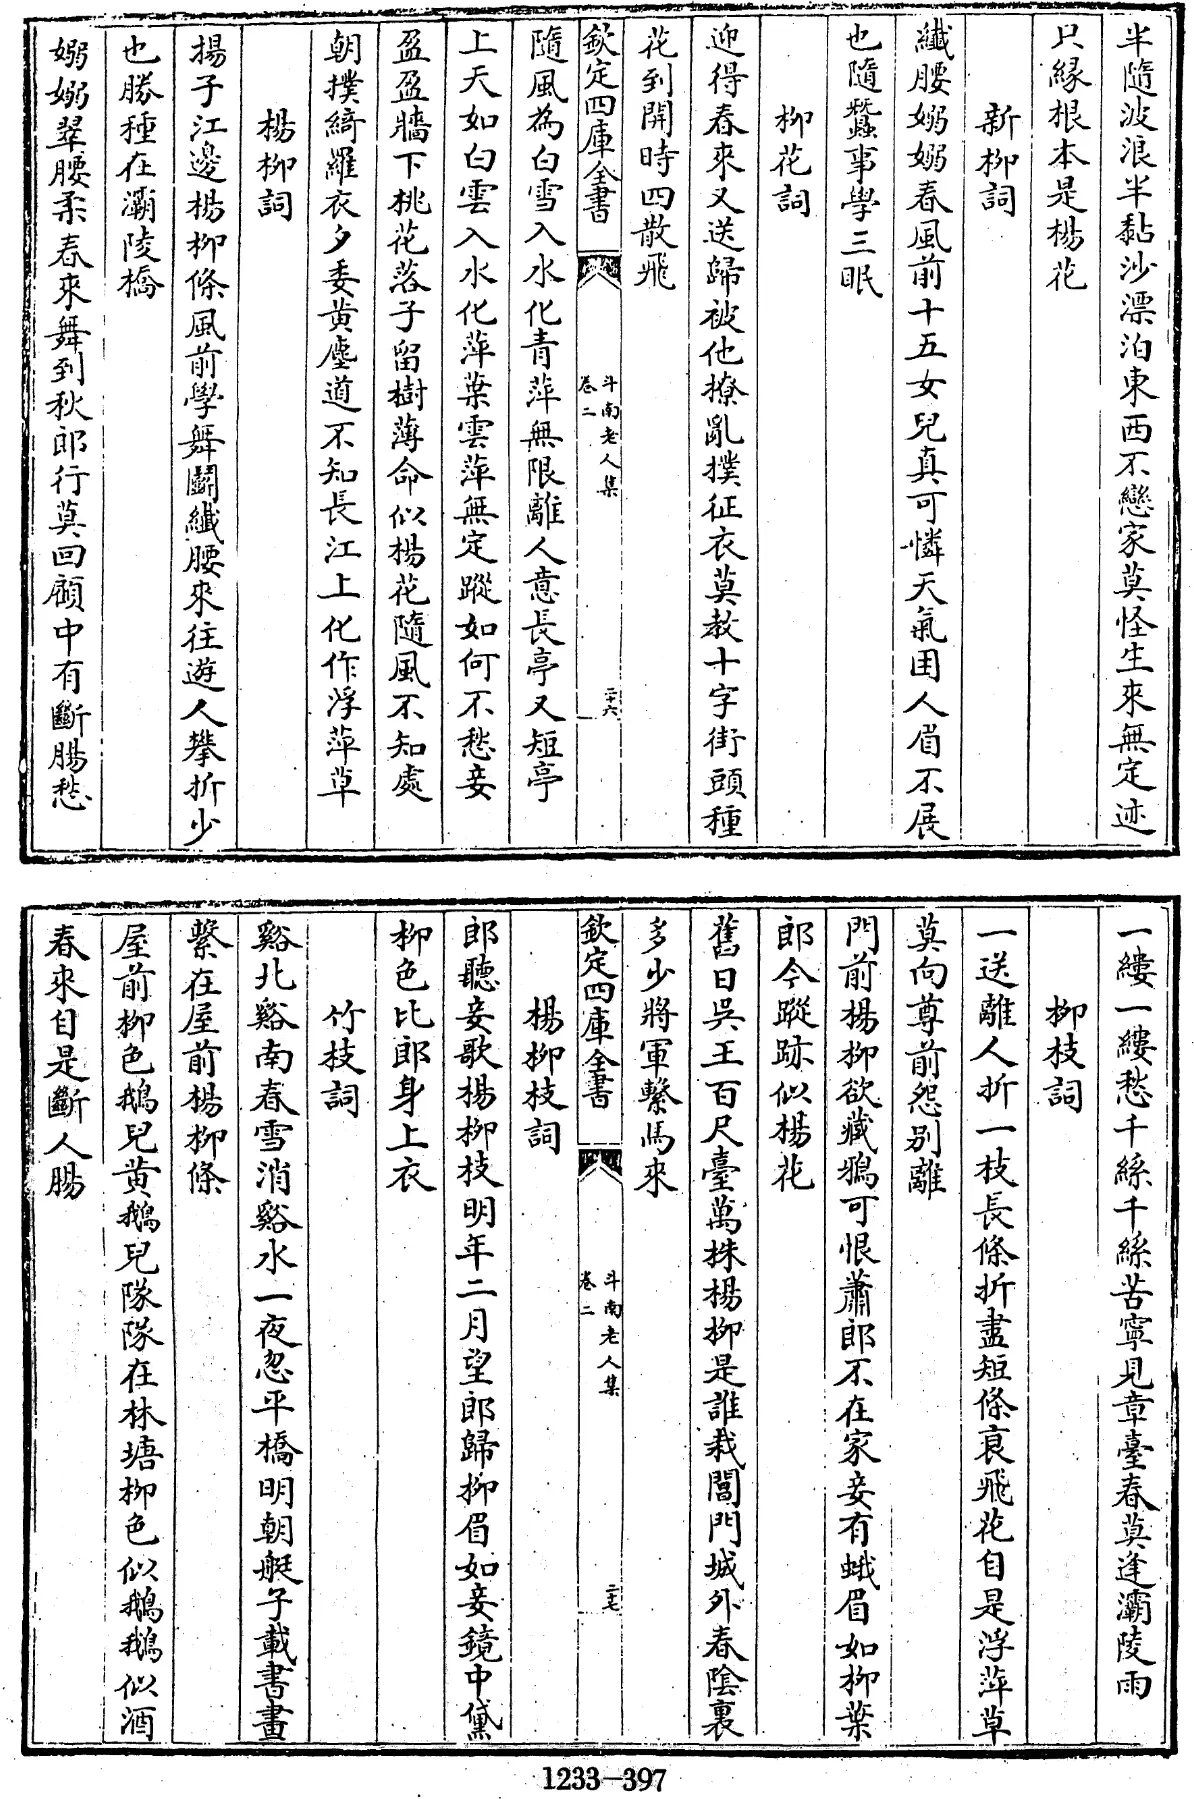 半隨波浪半黏沙漂泊東西不戀家莫怪生來無定迹
只緣根本是楊花
新柳詞
纖腰嫋嫋春風前十五女兒真可憐天氣困人眉不展
也隨蠶事學三眠
柳花詞
迎得春來又送歸被他撩亂撲征衣莫教十字街頭種
花到開時四散飛
欽定四庫全書
斗南老人集
卷二
二十六
隨風為白雪入水化青萍無限離人意長亭又短亭
上天如白雲入水化萍葉雲萍無定蹤如何不愁妾
盈盈牆下桃花落子留樹薄命似楊花隨風不知處
朝撲綺羅衣夕委黄塵道不知長江上化作浮萍草
楊柳詞
揚子江邊楊柳條風前學舞鬭纖腰來往遊人攀折少
也勝種在灞陵橋
嫋嫋翠腰柔春來舞到秋郎行莫回顧中有斷腸愁
一縷一縷愁千絲千絲苦寧見章臺春莫逢灞陵雨
柳枝詞
一送離人折一枝長條折盡短條衰飛花自是浮萍草
莫向尊前怨别離
門前楊柳欲藏鴉可恨蕭郎不在家妾有蛾眉如柳葉
郎今蹤跡似楊花
舊日吳王百尺臺萬株楊柳是誰栽閶門城外春陰裏
多少將軍繫馬來
欽定四庫全書
斗南老人集
卷二
二十七
楊柳枝詞
郎聽妾歌楊柳枝明年二月望郎歸柳眉如妾鏡中黛
柳色比郎身上衣
竹枝詞
谿北谿南春雪消谿水一夜忽平橋明朝艇子載書畫
繫在屋前楊柳條
屋前柳色鵝兒黄鵝兒隊隊在林塘柳色似鵝鵝似酒
春來自是斷人腸
1233-397